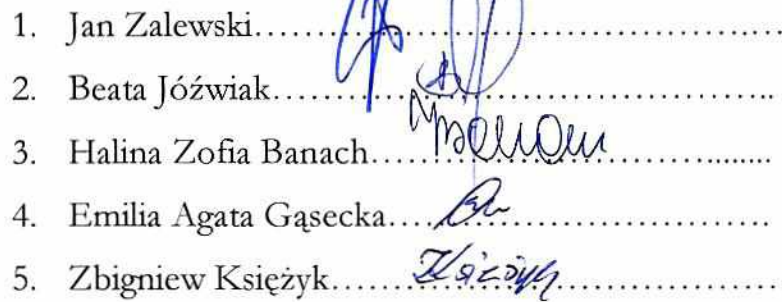 1. Jan Zalewski……………………………………………
2. Beata Jóźwiak……………………………………………..
3. Halina Zofia Banach……………………………........
4. Emilia Agata Gąsecka………………………………….
5. Zbigniew Księżyk……………………………………….